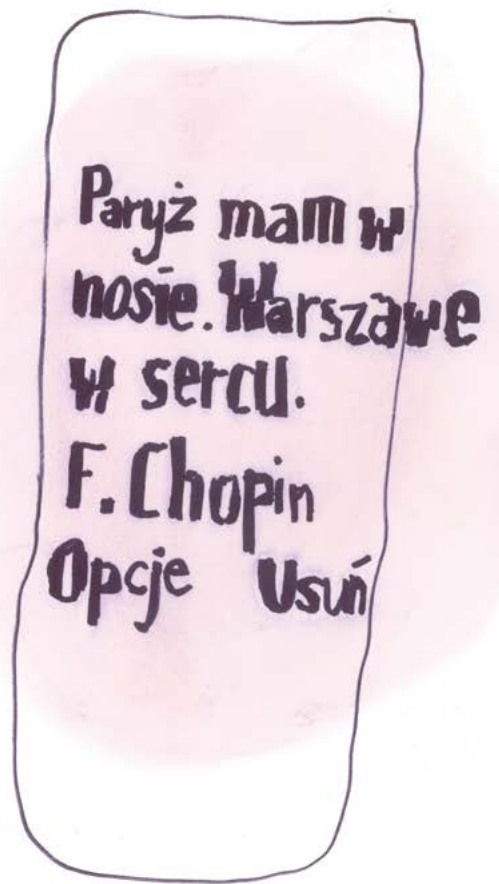 Paryż mam w
nosie. Warszawe
w sercu.
F. Chopin
Opcje Usuń